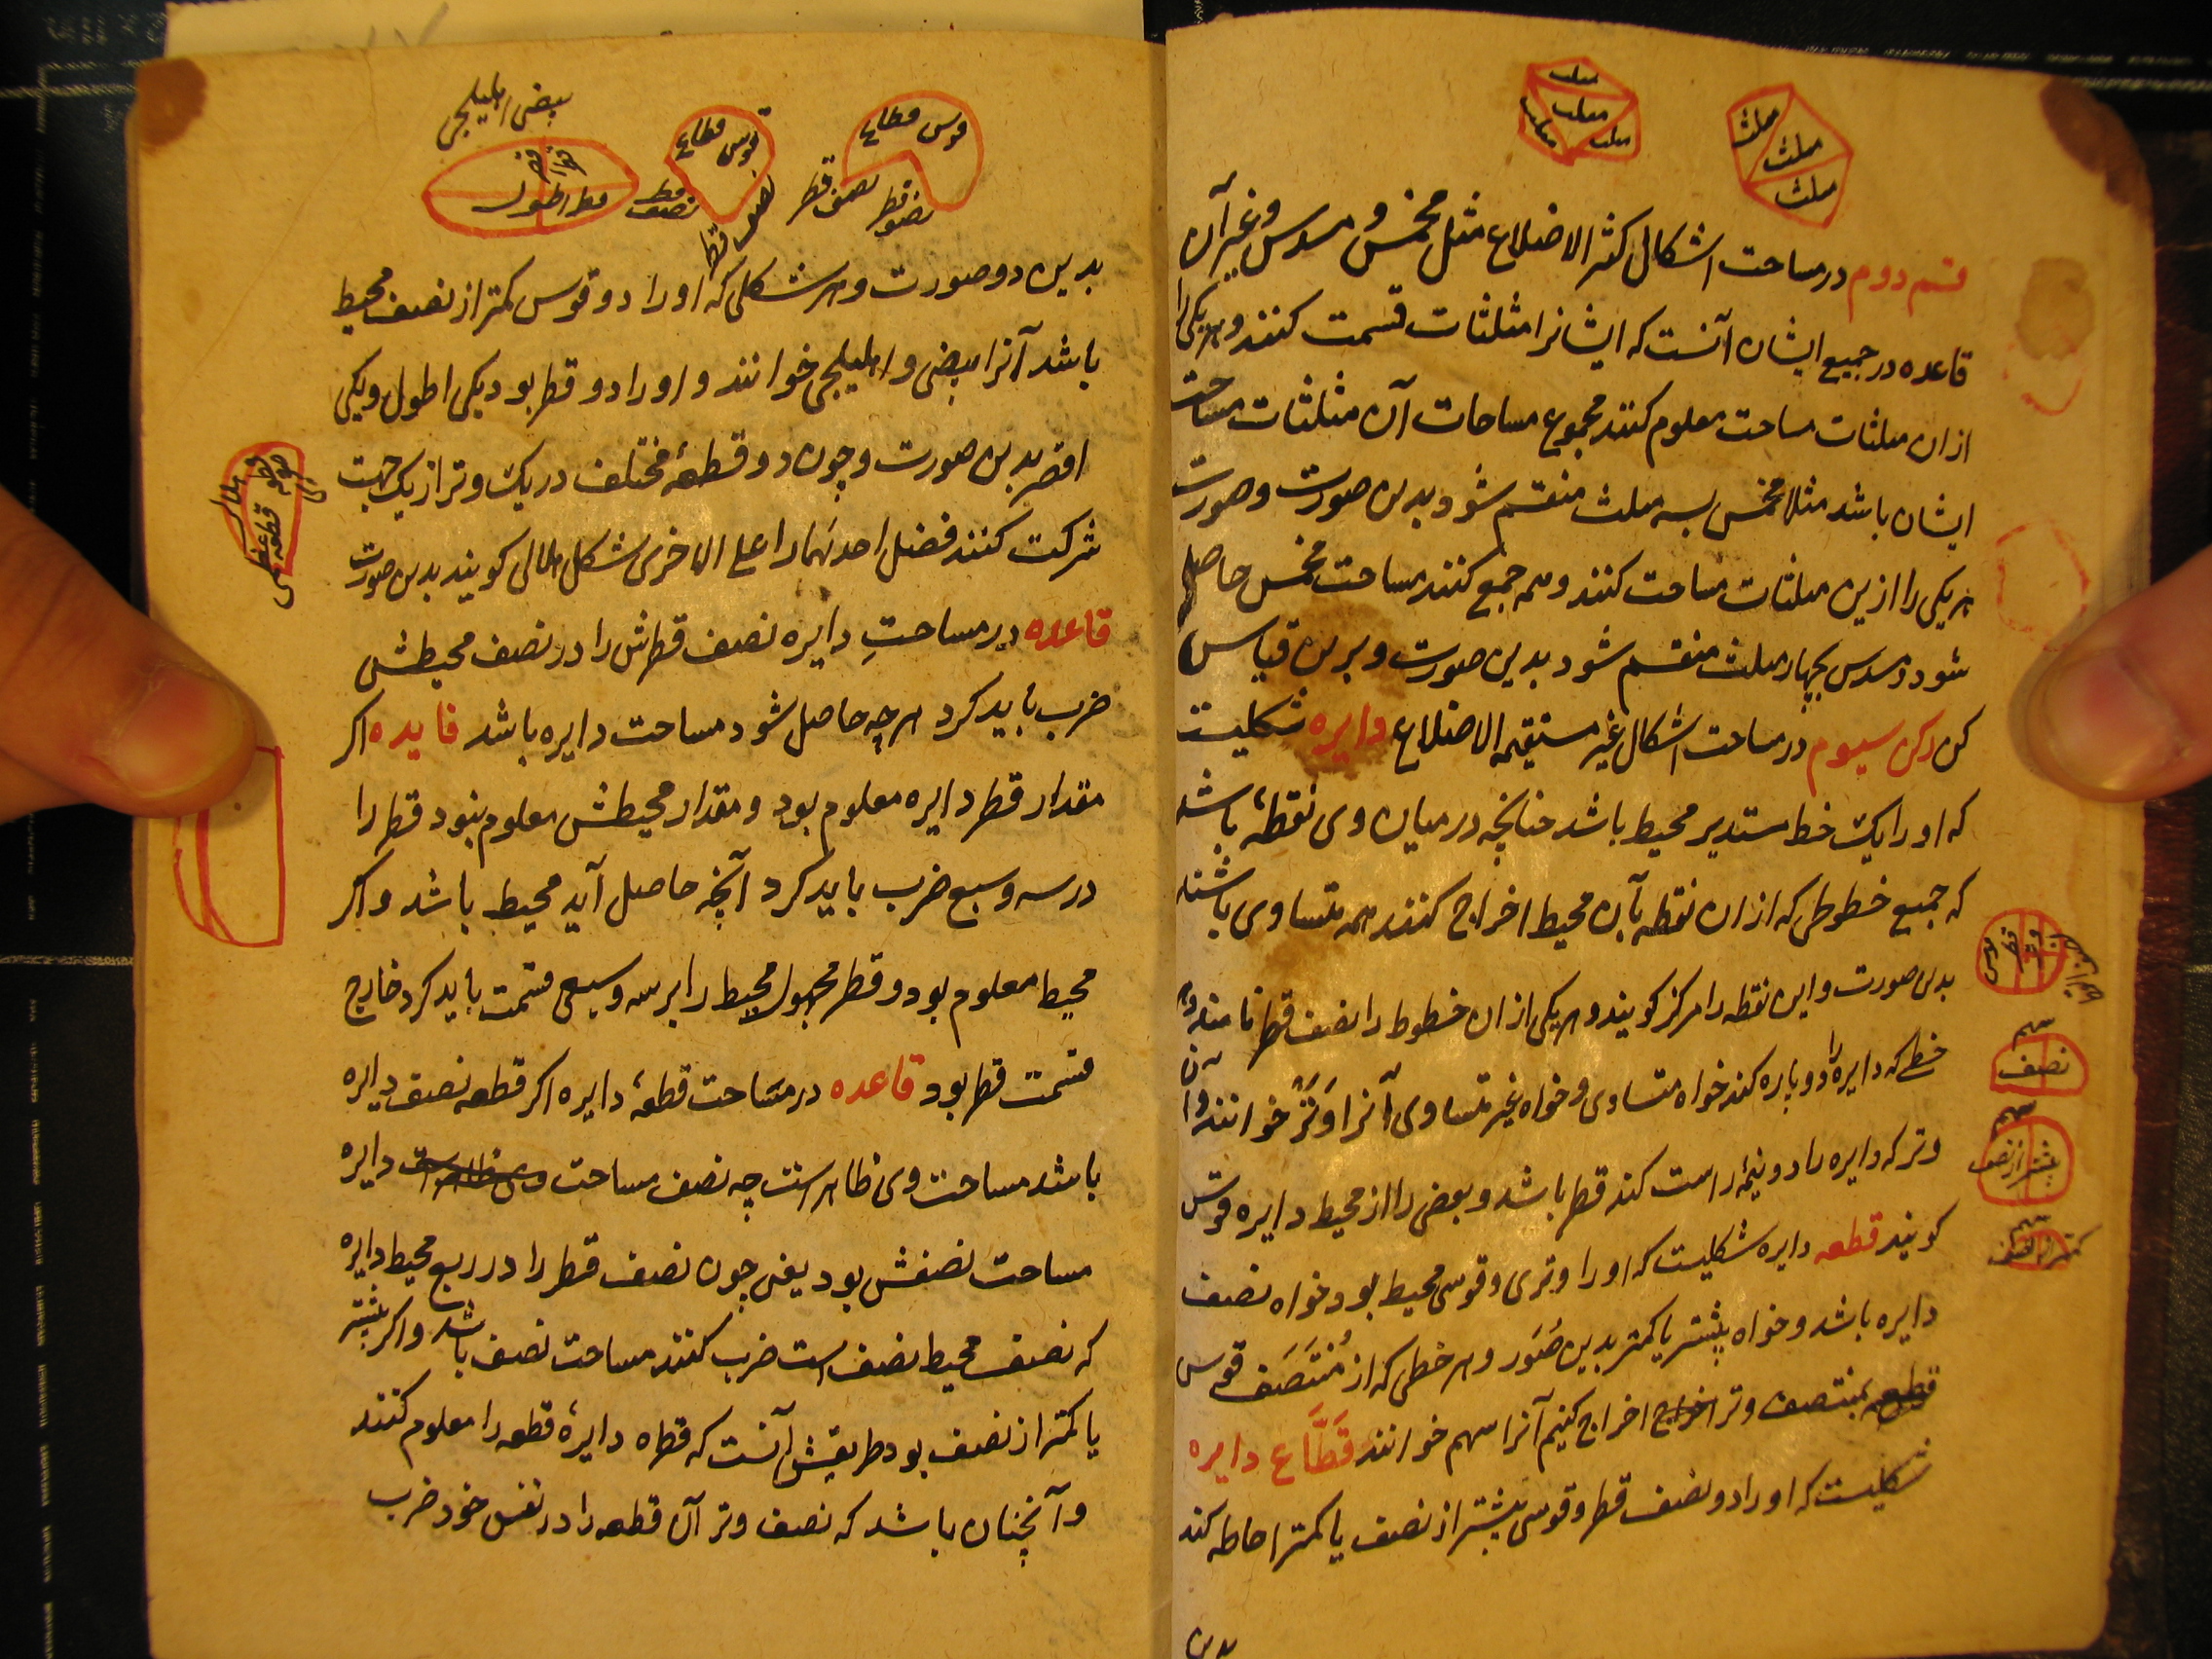 مثلث
مثلث
مثلث
مثلث
مثلث
مثلث
مثلث
قسم دوم در مساحت اشکال کثیر الاضلاع مثل مخمس و مسدس و غیر آن
قاعده در جمیع ایشان آنست که ایشانرا مثلثات قسمت کنند و هر یکی را
ازان مثلثات مساحت معلوم کنند مجموع مساحات آن مثلثات مساحت
ایشان باشد مثلا مخمس بسه مثلث منقسم شود بدین صورت و صورت
هر یکی را ازین مثلثات مساحت کنند و همه جمع کنند مساحت مخمس حاصل
شود و مسدس بچهار مثلث منقسم شود بدین صورت و برین قیاس
کن رکن سیوم در مساحت اشکال غیر مستقیمة الاضلاع دایره شکلیست
که او را یک خط مستدیر محیط باشد چنانچه در میان وی نقطهٔ باشد
که جمیع خطوطی که ازان نقطه بآن محیط اخراج کنند همه متساوی باشند
بدین صورت و این نقطه را مرکز کویند و هر یکی ازان خطوط را نصف قطر نامند و هر
خطی که دایره را دو پاره کند خواه متساوی و خواه غیر متساوی آنرا وَتَرْ خوانند و آن
وتر که دایره را دو نیمهٔ راست کند قطر باشد و بعضی را از محیط دایره قوس
کویند قطعه دایره شکلیست که او را وتری و قوسی محیط بود خواه نصف
دایره باشد و خواه بیشتر یا کمتر بدین صُوَر و هر خطی که از مُنْتَصَف قوس
قطعه بمنتصف وتر اخراج اخراج کنیم آنرا سهم خوانند قَطَّاع دایره
شکلیست که او را دو نصف قطر و قوسی بیشتر از نصف یا کمتر احاطه کند
بدین
قطر
سهم
نصف
سهم
بیشتر از نصف
سهم
کمتر از نصف
بیضی اهلیلجی
قطر اطول
قوس قطاع
نصف قطر
نصف قطر
قوس قطاع
نصف قطر
نصف قطر
بدین دو صورت و هر شکلی که او را دو قوس کمتر از نصف محیط
باشد آنرا بیضی و اهلیلجی خوانند و او را دو قطر بود یکی اطول و یکی
اقصر بدین صورت و چون دو قطعهٔ مختلف در یک وتر از یک جهت
شرکت کنند فضل احدیهما را علی الاخری شکل هلالی کویند بدین صورت
قاعده در مساحتِ دایره نصف قطرش را در نصف محیطش
ضرب باید کرد هر چه حاصل شود مساحت دایره باشد فایده اکر
مقدار قطر دایره معلوم بود و مقدار محیطش معلوم نبود قطر را
در سه و سبع ضرب باید کرد آنچه حاصل آید محیط باشد و اکر
محیط معلوم بود و قطر مجهول محیط را بر سه و سبعی قسمت باید کرد خارج
قسمت قطر بود قاعده در مساحت قطعهٔ دایره اکر قطعه نصف دایره
باشد مساحت وی ظاهر است چه نصف مساحت وی ظاهر است دایره
مساحت نصفش بود یعنی چون نصف قطر را در ربع محیط دایره
که نصف محیط نصف است ضرب کنند مساحت نصف باشد و اکر بیشتر
یا کمتر از نصف بود طریقش آنست که قطر دایرهٔ قطعه را معلوم کنند
و آنچنان باشد که نصف وتر آن قطعه را در نفس خود ضرب
هلال
قطعه عظمی